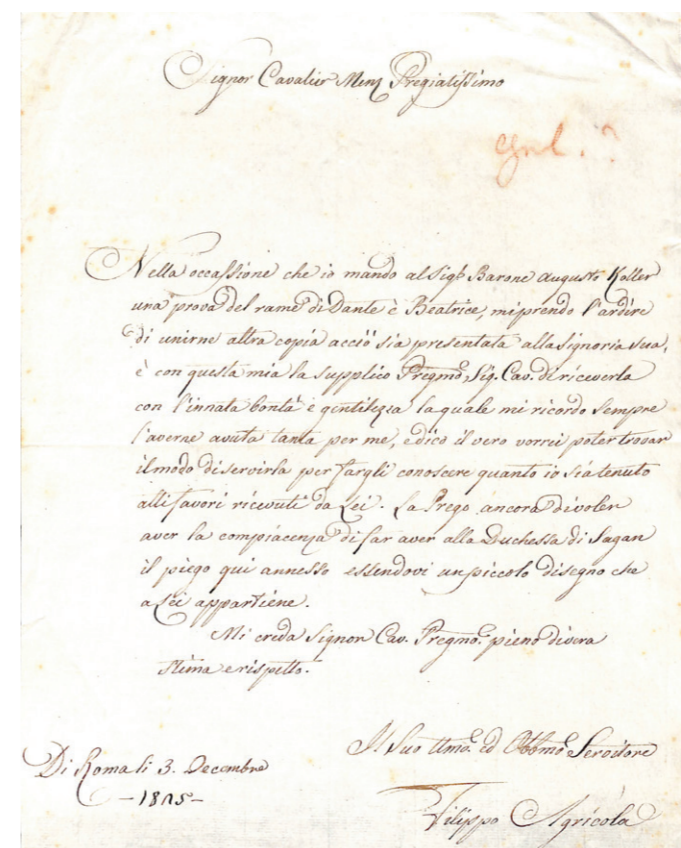 Signor Cavalier Menz Pregiatissimo
Nella occassione che io mando al Sig.r Barone Augusto Koller
una prova del rame di Dante è Beatrice, mi prendo l'ardire
di unirne altra copia acciò sia presentata alla Signoria Sua,
è con questa mia la supplico Pregmo. Sig. Cav. di riceverla
con l'innata bontà è gentilezza la quale mi ricordo sempre
l'averne avuta tanta per me, e dico il vero vorrei poter trovar
il modo di servirla per fargli conoscere quanto io sia tenuto
alli favori ricevuti da Lei. La Prego ancora di voler
aver la compiacenza di far aver alla Duchessa di Sagan
il piego qui annesso essendovi un piccolo disegno che
a Lei appartiene.
Mi creda Signor Cav. Pregmo. pieno di vera
stima e rispetto.
Il Suo Umo. ed Obbmo. Servitore
Di Roma li 3. Decembre
Filippo Agricola